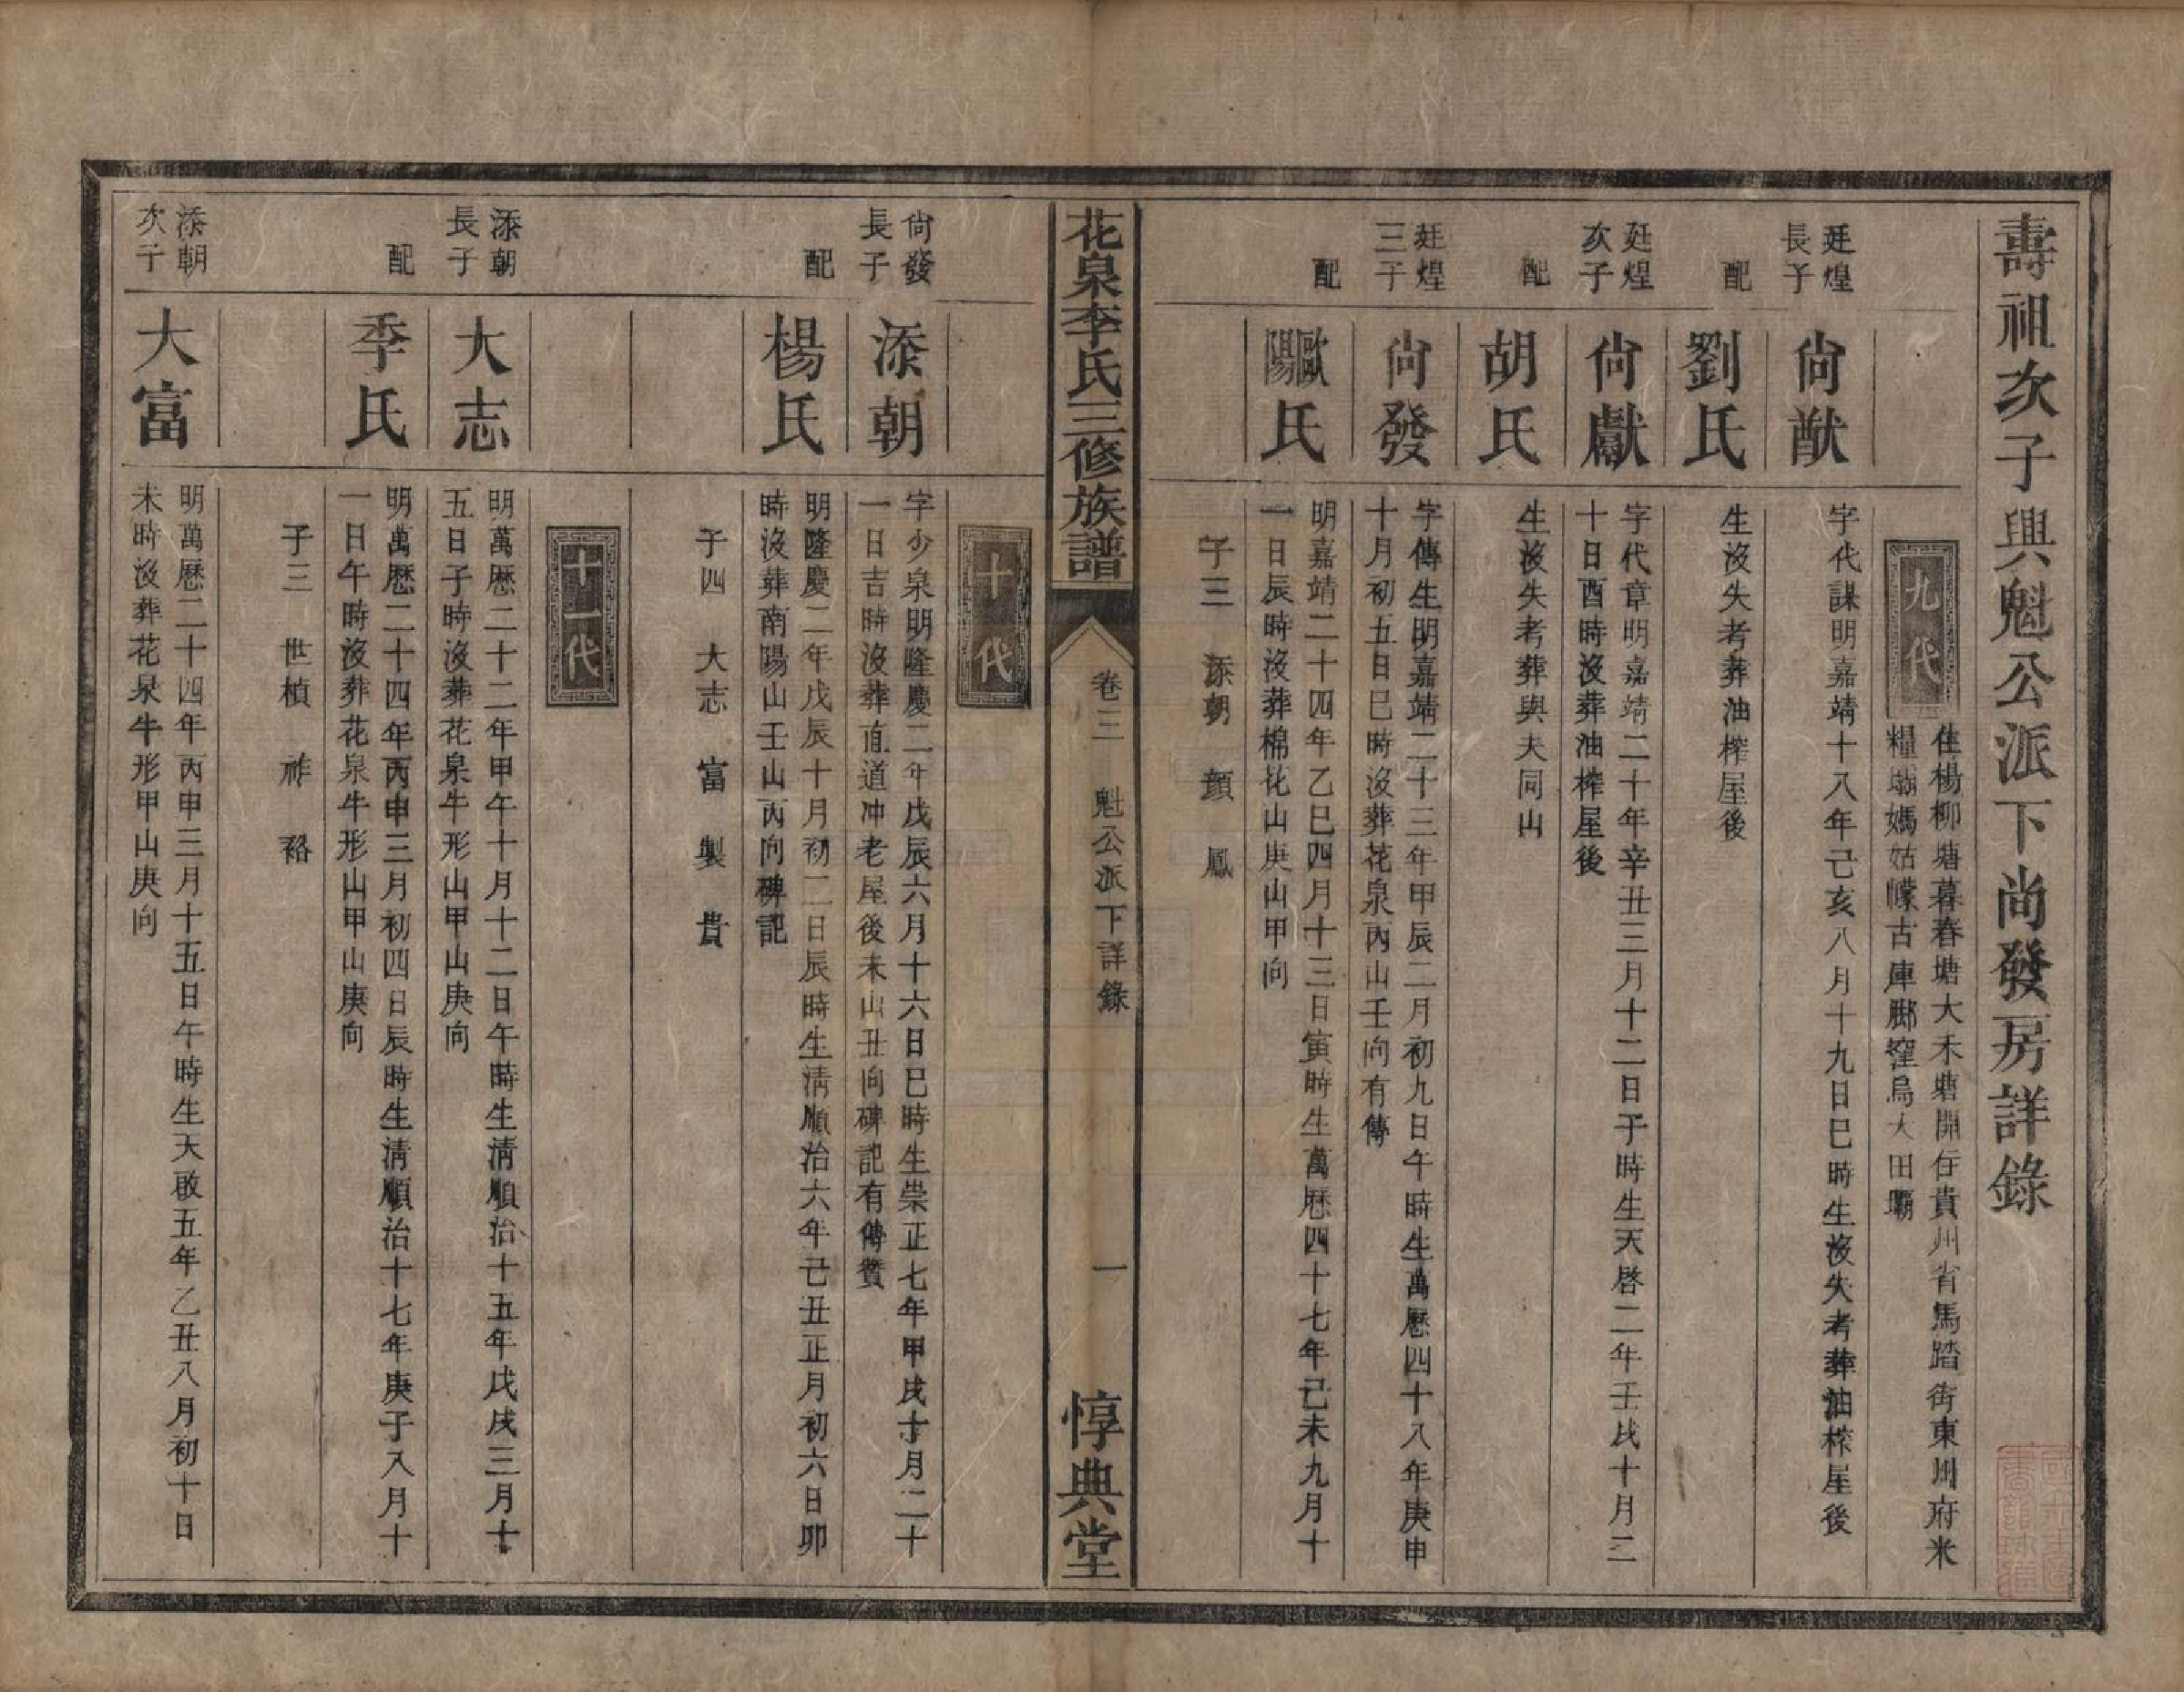 壽祖次子興魁公派下尚發房詳錄
九代
住楊柳塘暮春塘大禾塘開住貴州省馬踏街東川府米
糧壩媽姑幪古庫腳窪烏大田壩
廷煌
長子
尙猷
字代謀明嘉靖十八年己亥八月十九日巳時生沒失考葬油榨屋後
配
劉氏
生沒失考葬油榨屋後
廷煌
次子
尙獻
字代章明嘉靖二十年辛丑三月十二日子時生天啓二年壬戌十月二
十日酉時沒葬油榨屋後
配
胡氏
生沒失考葬與夫同山
廷煌
三子
尙發
字傳生明嘉靖二十三年甲辰二月初九日午時生萬曆四十八年庚申
十月初五日巳時沒葬花泉丙山壬向有傳
配
歐陽氏
明嘉靖二十四年乙巳四月十三日寅時生萬歷四十七年己未九月十
一日辰時沒葬棉花山庚山甲向
子三　添朝　顔　鳳
花泉李氏三修族譜
卷三　魁公派下詳錄
一
惇典堂
十代
尙發
長子
添朝
字少泉明隆慶二年戊辰六月十六日巳時生崇正七年甲戌十月二十
一日吉時沒葬直道冲老屋後未山丑向碑記有傳贊
配
楊氏
明隆慶二年戊辰十月初二日辰時生淸順治六年己丑正月初六日卯
時沒葬南陽山壬山丙向碑記
子四　大志　富　製　貴
十一代
添朝
長子
大志
明萬歷二十二年甲午十月十二日午時生淸順治十五年戊戌三月十
五日子時沒葬花泉牛形山甲山庚向
配
季氏
明萬歷二十四年丙申三月初四日辰時生淸順治十七年庚子八月十
一日午時沒葬花泉牛形山甲山庚向
子三　世楨　祚　裕
添朝
次子
大富
明萬歷二十四年丙申三月十五日午時生天啟五年乙丑八月初十日
未時沒葬花泉牛形甲山庚向